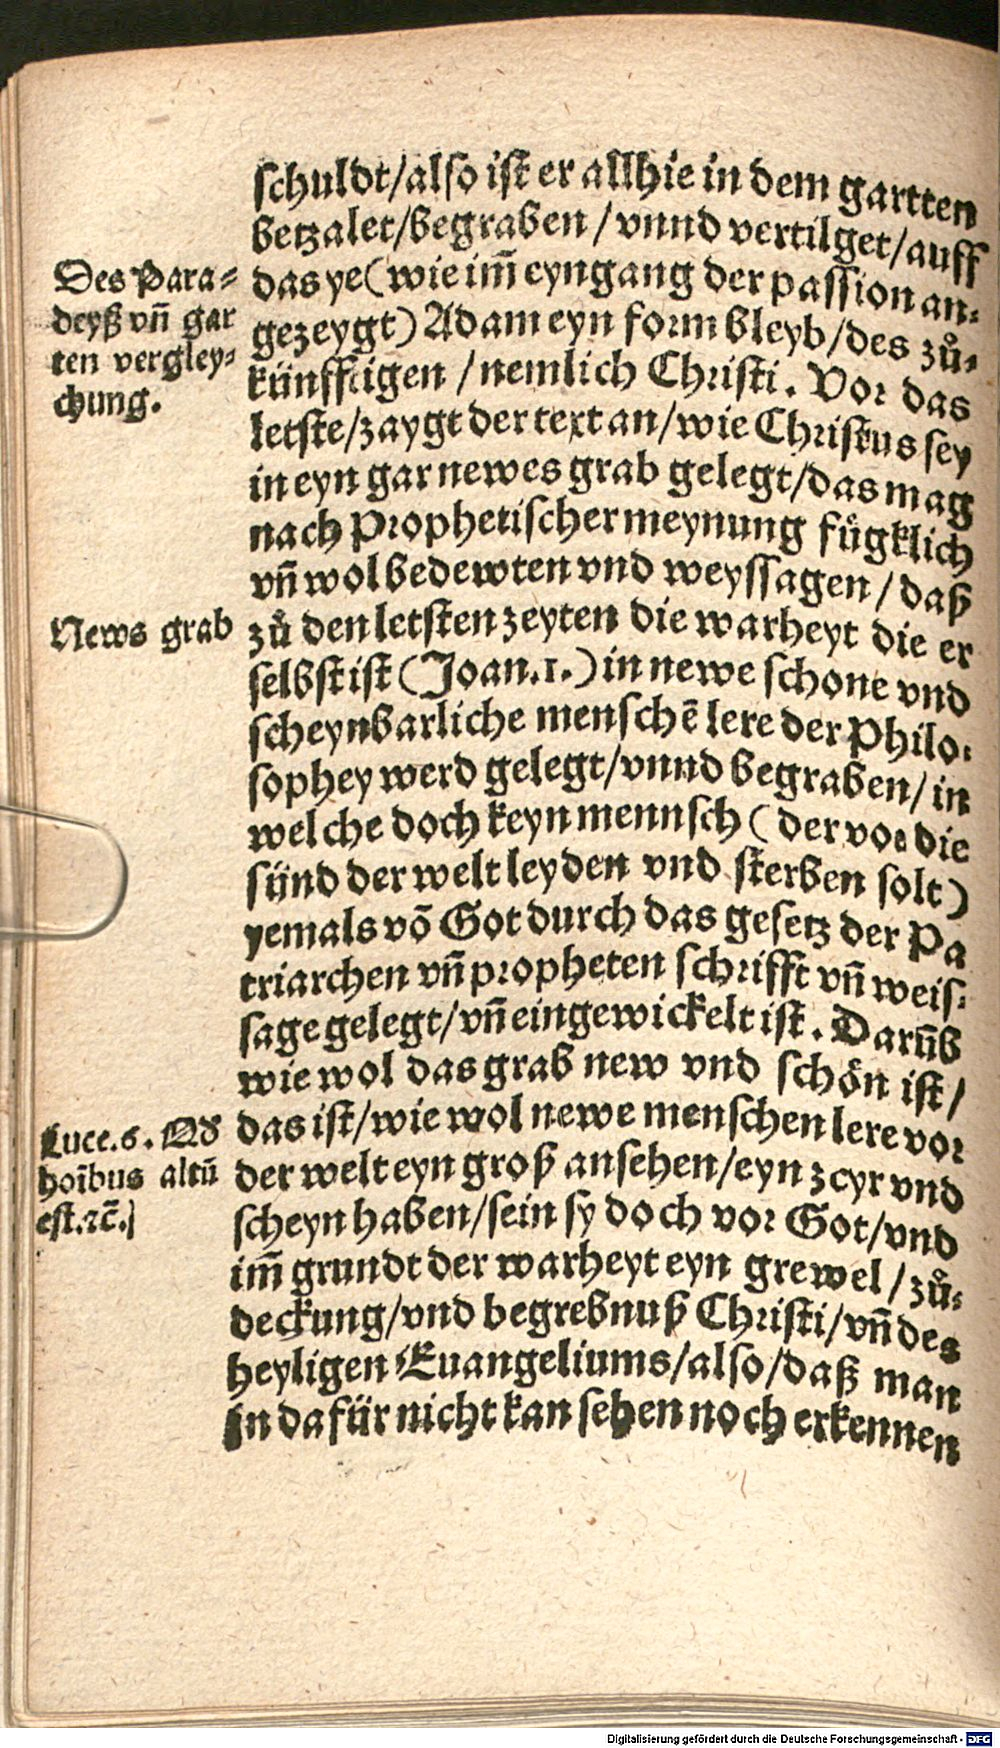 schuldt/also ist er allhie in dem gartten
betzalet/begraben/vnnd vertilget/auff
das ye(wie im̃ eyngang der passion an-
gezeygt) Adam eyn form bleyb/des zů-
künfftigen/nemlich Christi. Vor das
letste/zaygt der text an/wie Christus sey
in eyn gar newes grab gelegt/das mag
nach Prophetischer meynung fůgklich
vñ wol bedewten vnd weyssagen/daß
zů den letsten zeyten die warheyt die er
selbst ist (Joan.1.) in newe schone vnd
scheynbarliche menschẽ lere der Philo-
sophey werd gelegt/vnnd begraben/in
welche doch keyn mennsch (der vor die
sünd der welt leyden vnd sterben solt)
yemals võ Got durch das gesetz der Pa
triarchen vñ propheten schrifft vñ weis-
sage gelegt/vñ eingewickelt ist. Darũb
wie wol das grab new vnd schön ist/
das ist/wie wol newe menschen lere vor
der welt eyn groß ansehen/eyn zcyr vnd
scheyn haben/sein sy doch vor Got/vnd
im̃ grundt der warheyt eyn grewel/zů-
deckung/vnd begrebnuß Christi/vñ des
heyligen Euangeliums/also/daß man
jn dafür nicht kan sehen noch erkennen
Des Para-
deyß vñ gar
ten vergley-
chung.
News grab
Luce.6. Qd
hoĩbus altũ
est.ꝛc̃.]
Digitalisierung gefördert durch die Deutsche Forschungsgemeinschaft - DFG